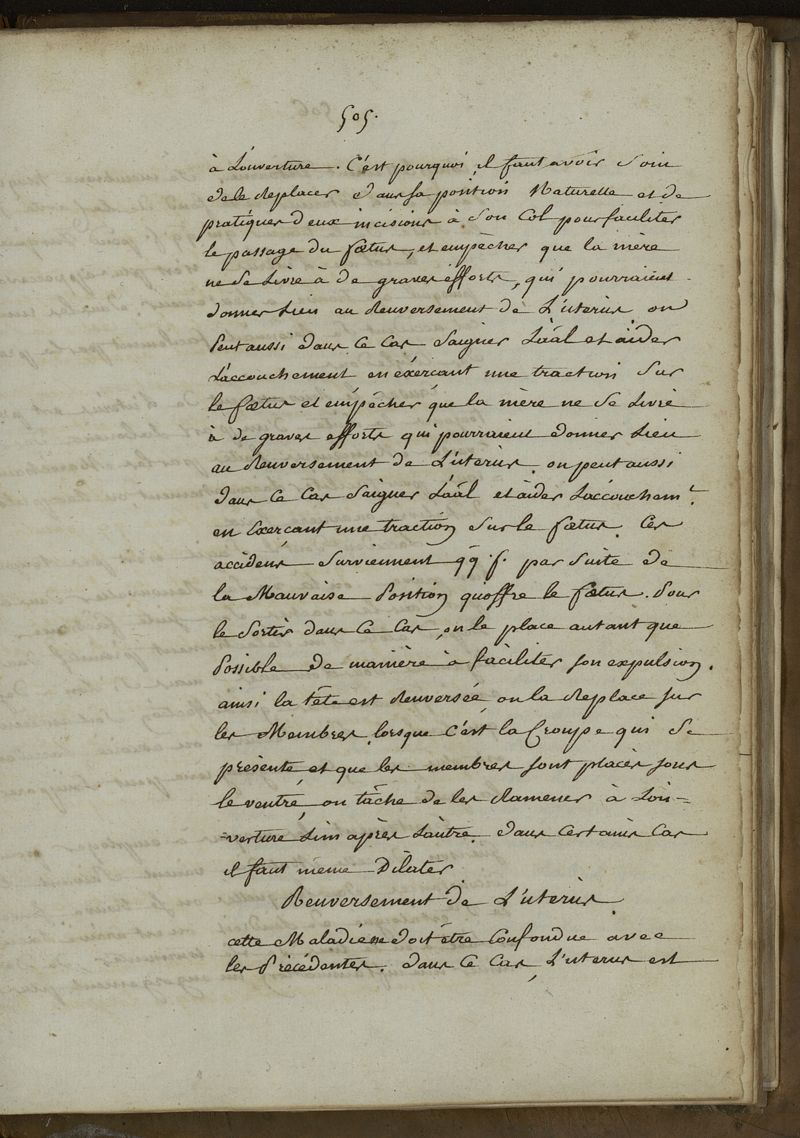 505.
à L'ouverture. C'est pourquoi il faut avoir Soin
de le Replacer dans sa position Naturelle et de
pratiquer deux incisions à Son Col pour faciliter
le passage du foetus, et empêcher que la mère
ne se Livre à de graves efforts, qui pourraient
donner Lieu au Renversement de L'utérus on
Peut aussi dans Ce Cas Saigner et aider
L'accouchement en éxerçant une traction Sur
le foetus et empêcher que la mère ne Se Livre
à de graves efforts qui pourraient donner Lieu
au Renversement de L'utérus. on peut aussi
dans Ce Cas Saigner et aider L'accouchem.t
en Exerçant une traction Sur le foetus. Ces
accidens Surviennent qq. f. par Suite de
la Mauvaise Position qu'offre le foetus. Pour
le Sortir dans Ce Cas, on le place autant que
Possible de manière à faciliter son expulsion.
ainsi la tête est Renversée, on la Replace sur
les Membres, lorsque C'est la Croupe qui Se
présente et que les membres sont placés sous
le ventre, on tâche de les Ramener à L'ou=
=verture L'un après L'autre. dans Certains Cas
il faut même Dilater.
Renversement de L'utérus
cette Maladie ne doit être Confondue avec
les Précédentes. dans Ce Cas, L'utérus est